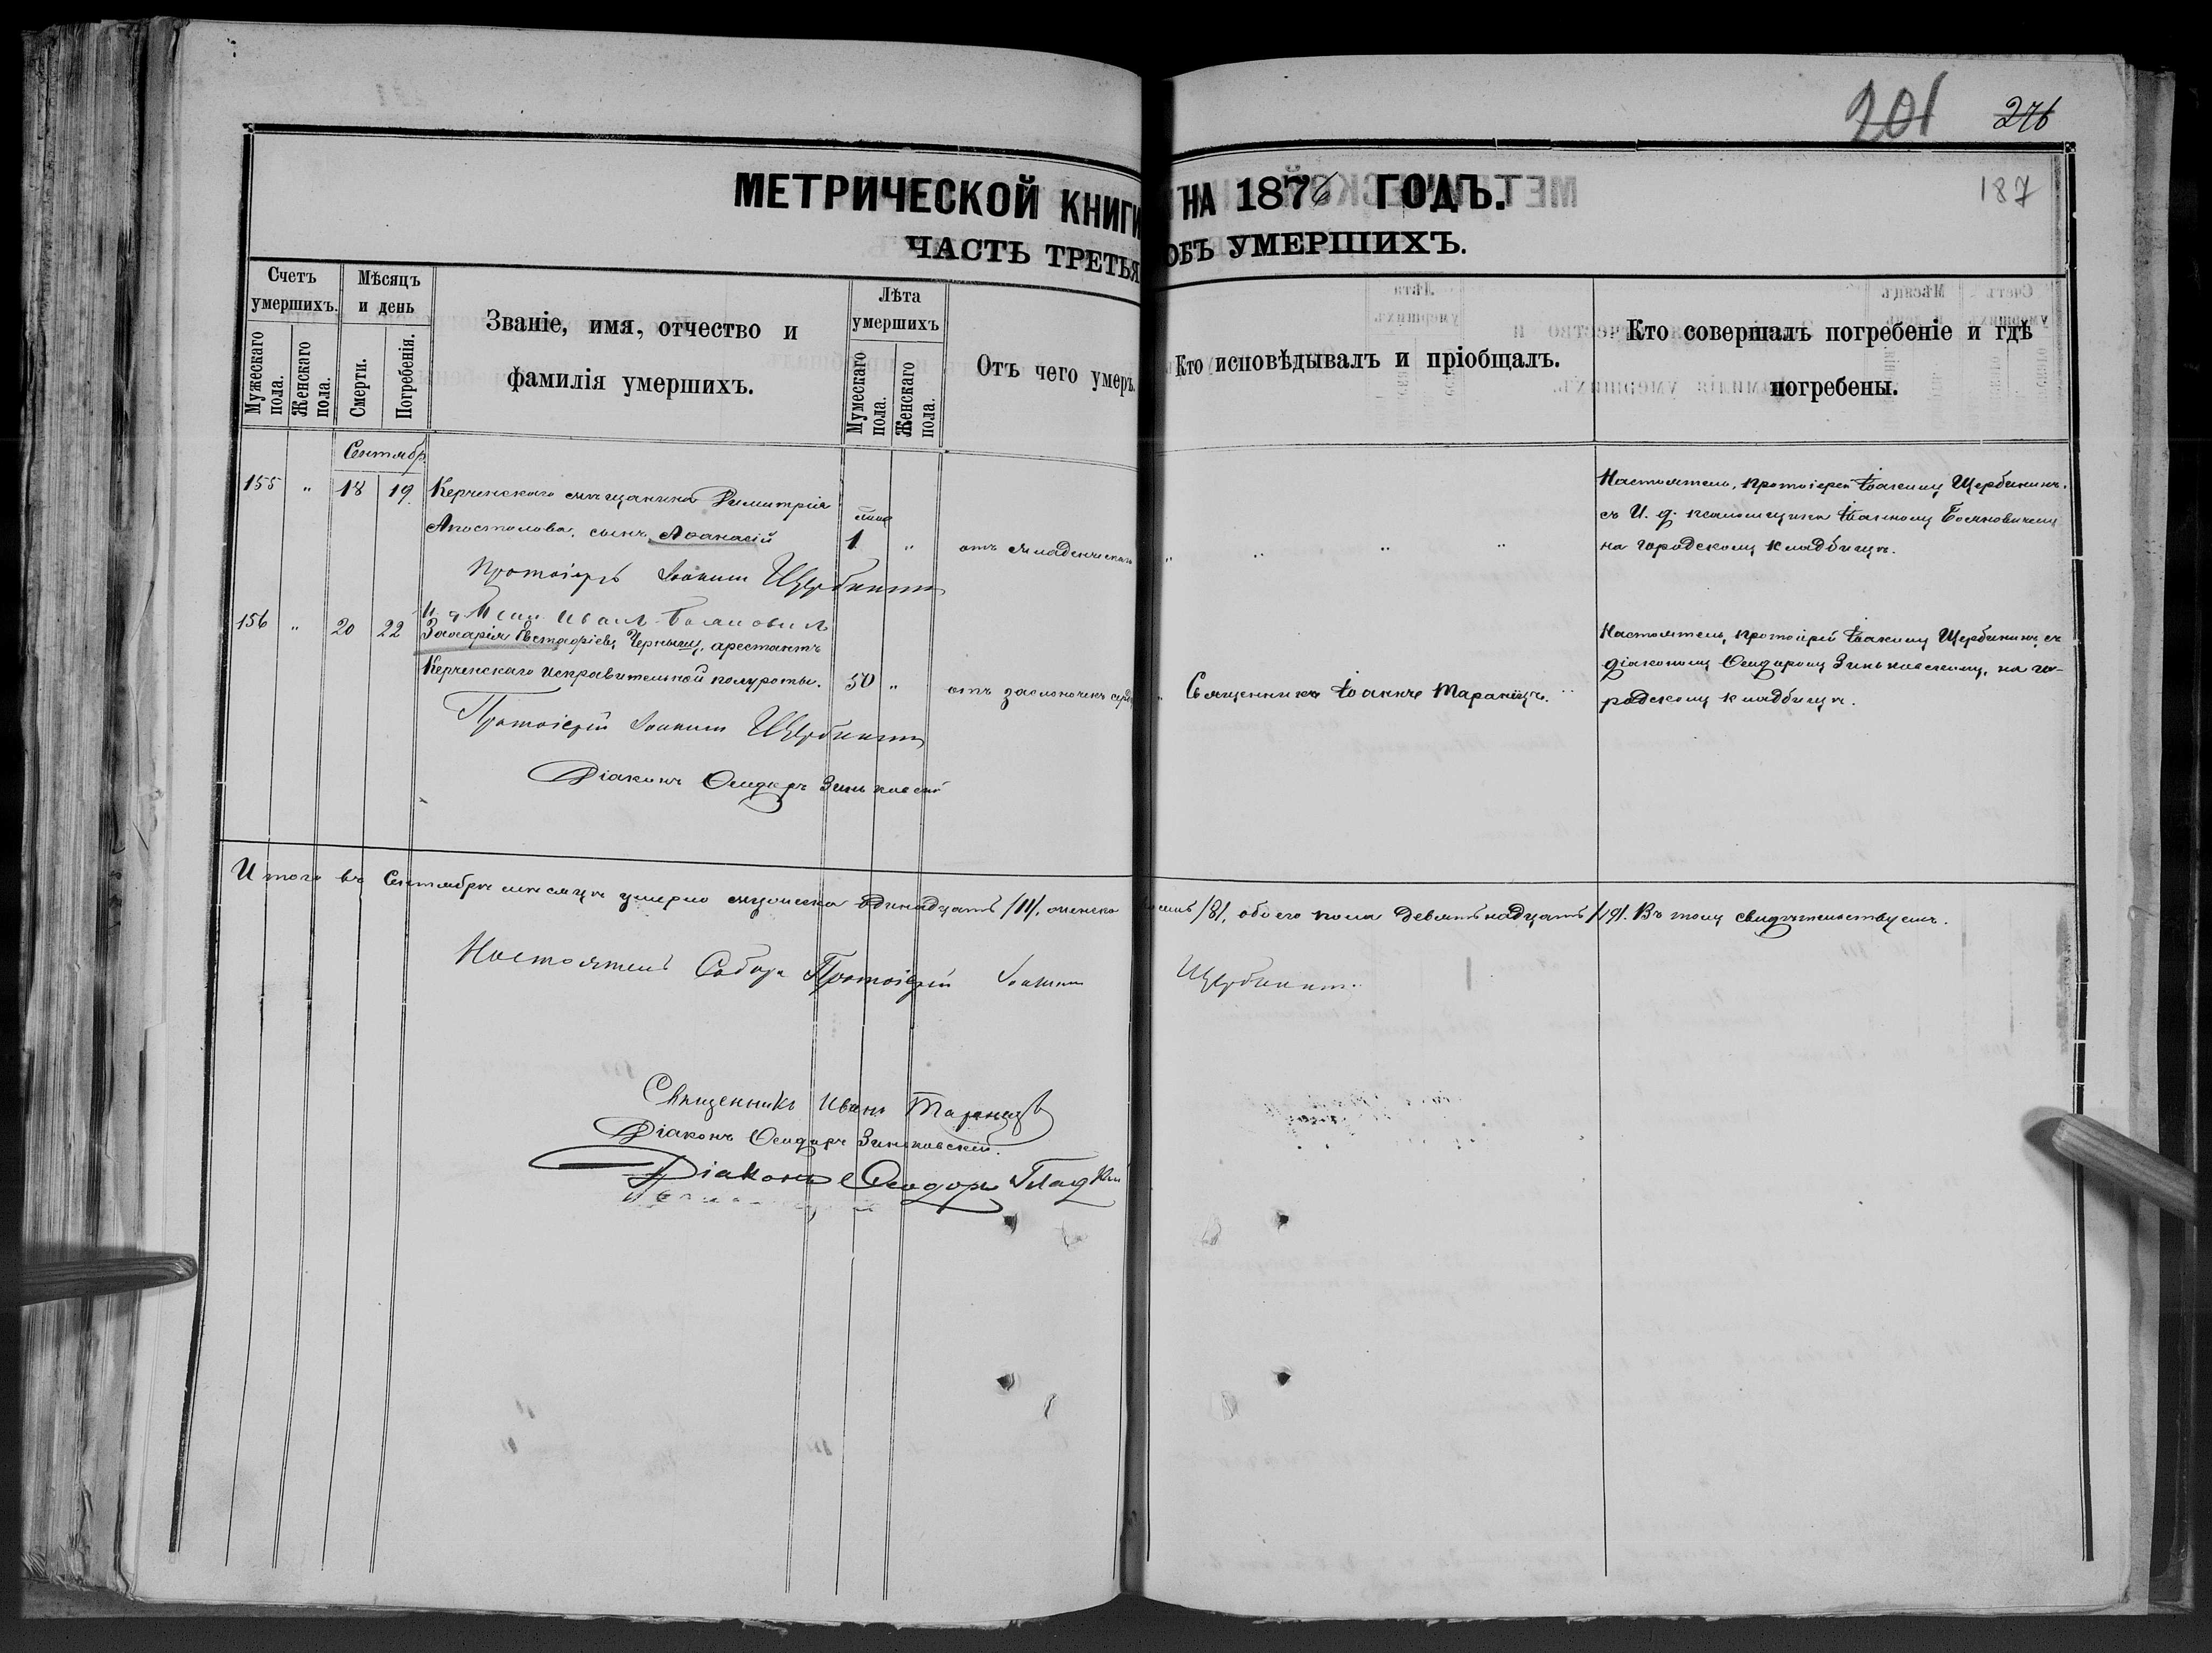 201 276
187
МЕТРИЧЕСКОЙ КНИГИ НА 1876 ГОДЪ.
ЧАСТЬ ТРЕТЬЯ ОБЪ УМЕРШИХЪ.
Счетъ умершихъ.
Мужескаго пола.
Женскаго пола.
Мѣсяцъ и день
Смерти.
Погребенія.
Званіе, имя, отчество и
фамилія умершихъ.
Лѣта умершихъ
Мужескаго пола.
Женскаго пола.
Отъ чего умеръ.
Кто исповѣдывалъ и пріобщалъ.
Кто совершалъ погребеніе и гдѣ
погребены.
Сентябр.
155 " 18 19 Керченскаго мѣщанина Димитрія
Апостолова, сынъ Аѳанасій
1 " отъ младенческ
" " " "
Настоятель, протоіерей Іоакимъ Щербининъ,
съ И. д. псаломщика Іоанномъ Бояновичемъ
на городскомъ кладбищѣ.
Протоіерей Іоакимъ Щербининъ
И. д. Псал. Иванъ Бояновичъ
156 " 20 22 Захарія Евстафіевъ Чернышъ, арестантъ
Керченскаго исправительной полуроты.
50 " отъ заслоночекъ серд
Священникъ Іоаннъ Таранецъ.
Настоятель, протоіерей Іоакимъ Щербининъ, съ
діакономъ Ѳеодоромъ Зиньковскимъ, на го-
родскомъ кладбищѣ.
Протоіерей Іоакимъ Щербининъ
Діаконъ Ѳеодоръ Зиньковскій
Итого въ Сентябрѣ мѣсяцѣ умерло мужеска одинадцать /11/, женска восемь /8/, обоего пола девятьнадцать /19/. Въ томъ свидѣтельствуемъ.
Настоятель Собора Протоіерей Іоакимъ Щербининъ.
Священникъ Иванъ Таранецъ
Діаконъ Ѳеодоръ Зиньковскій.
Діаконъ Ѳеодоръ Гладкій